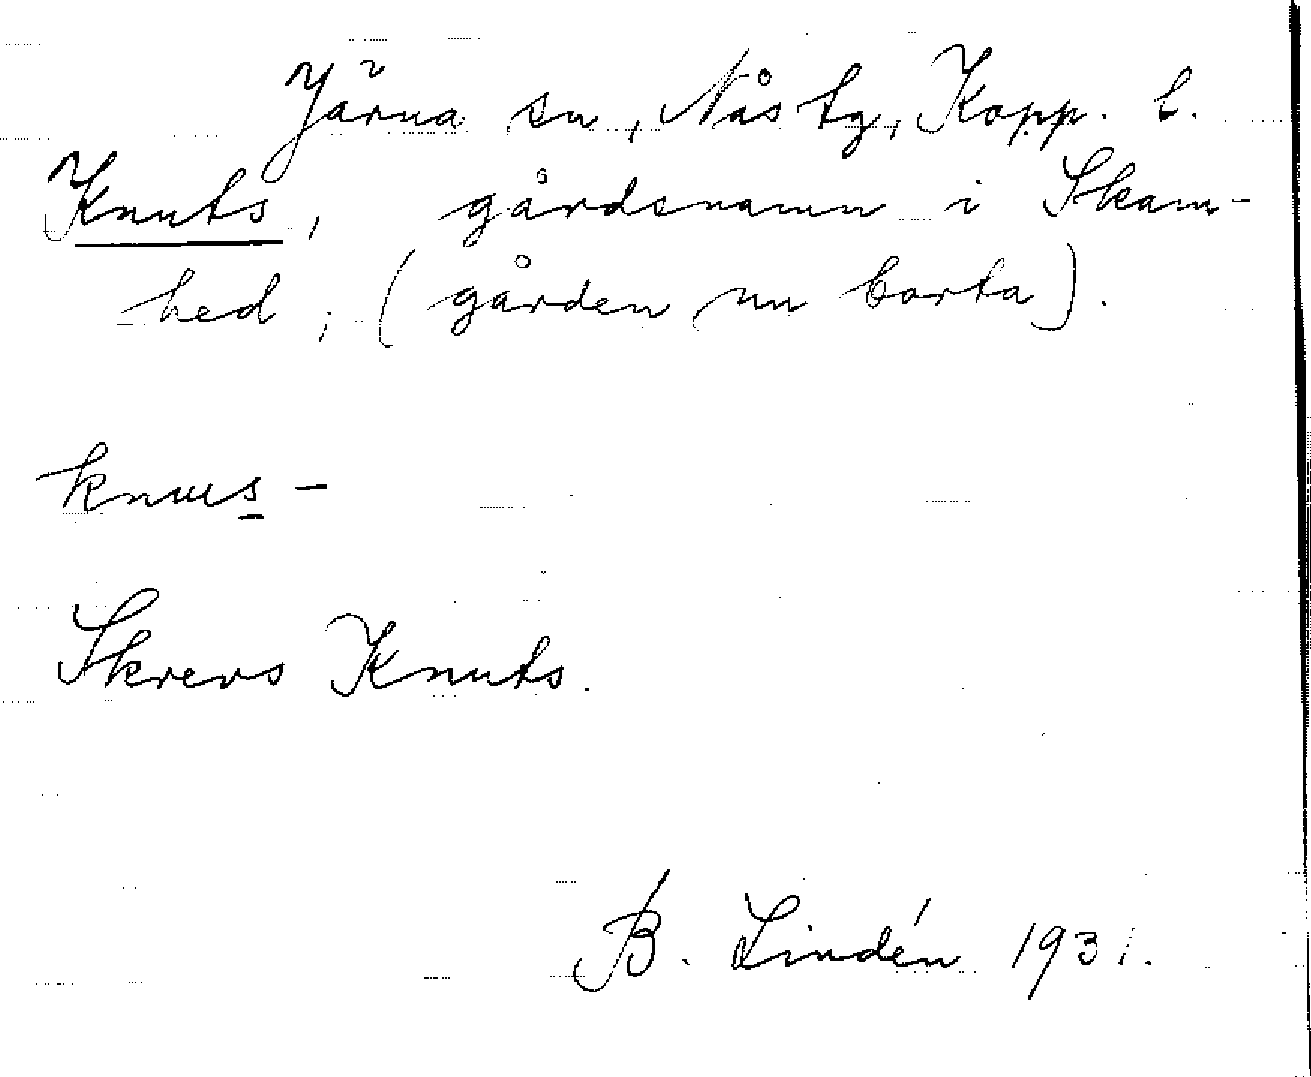 Järna sn, Nås tg, Kopp. l.
Knuts, gårdsnamn i Skam-
hed; (gården nu borta).
knus-
Skrevs Knuts.
B. Lindén 1931.